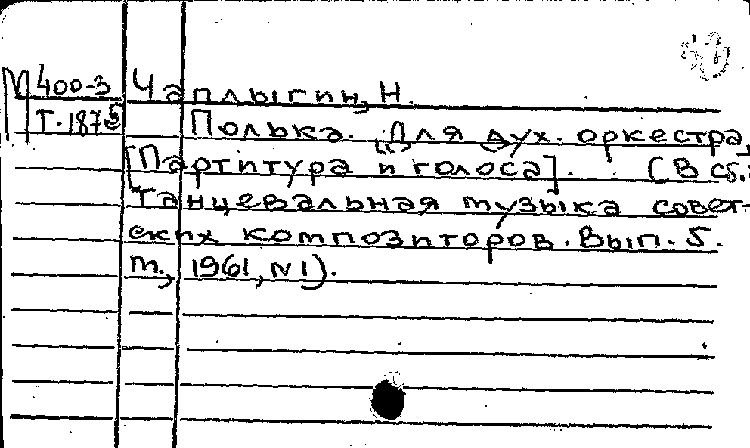 М 400-3 Чаплыгин, Н.
Т.1875 Полька. Для дух. оркестра,
[Партитура и голоса]. (В сб.:
Танцевальная музыка совет-
ских композиторов. Вып. 5.
М., 1961, №1).